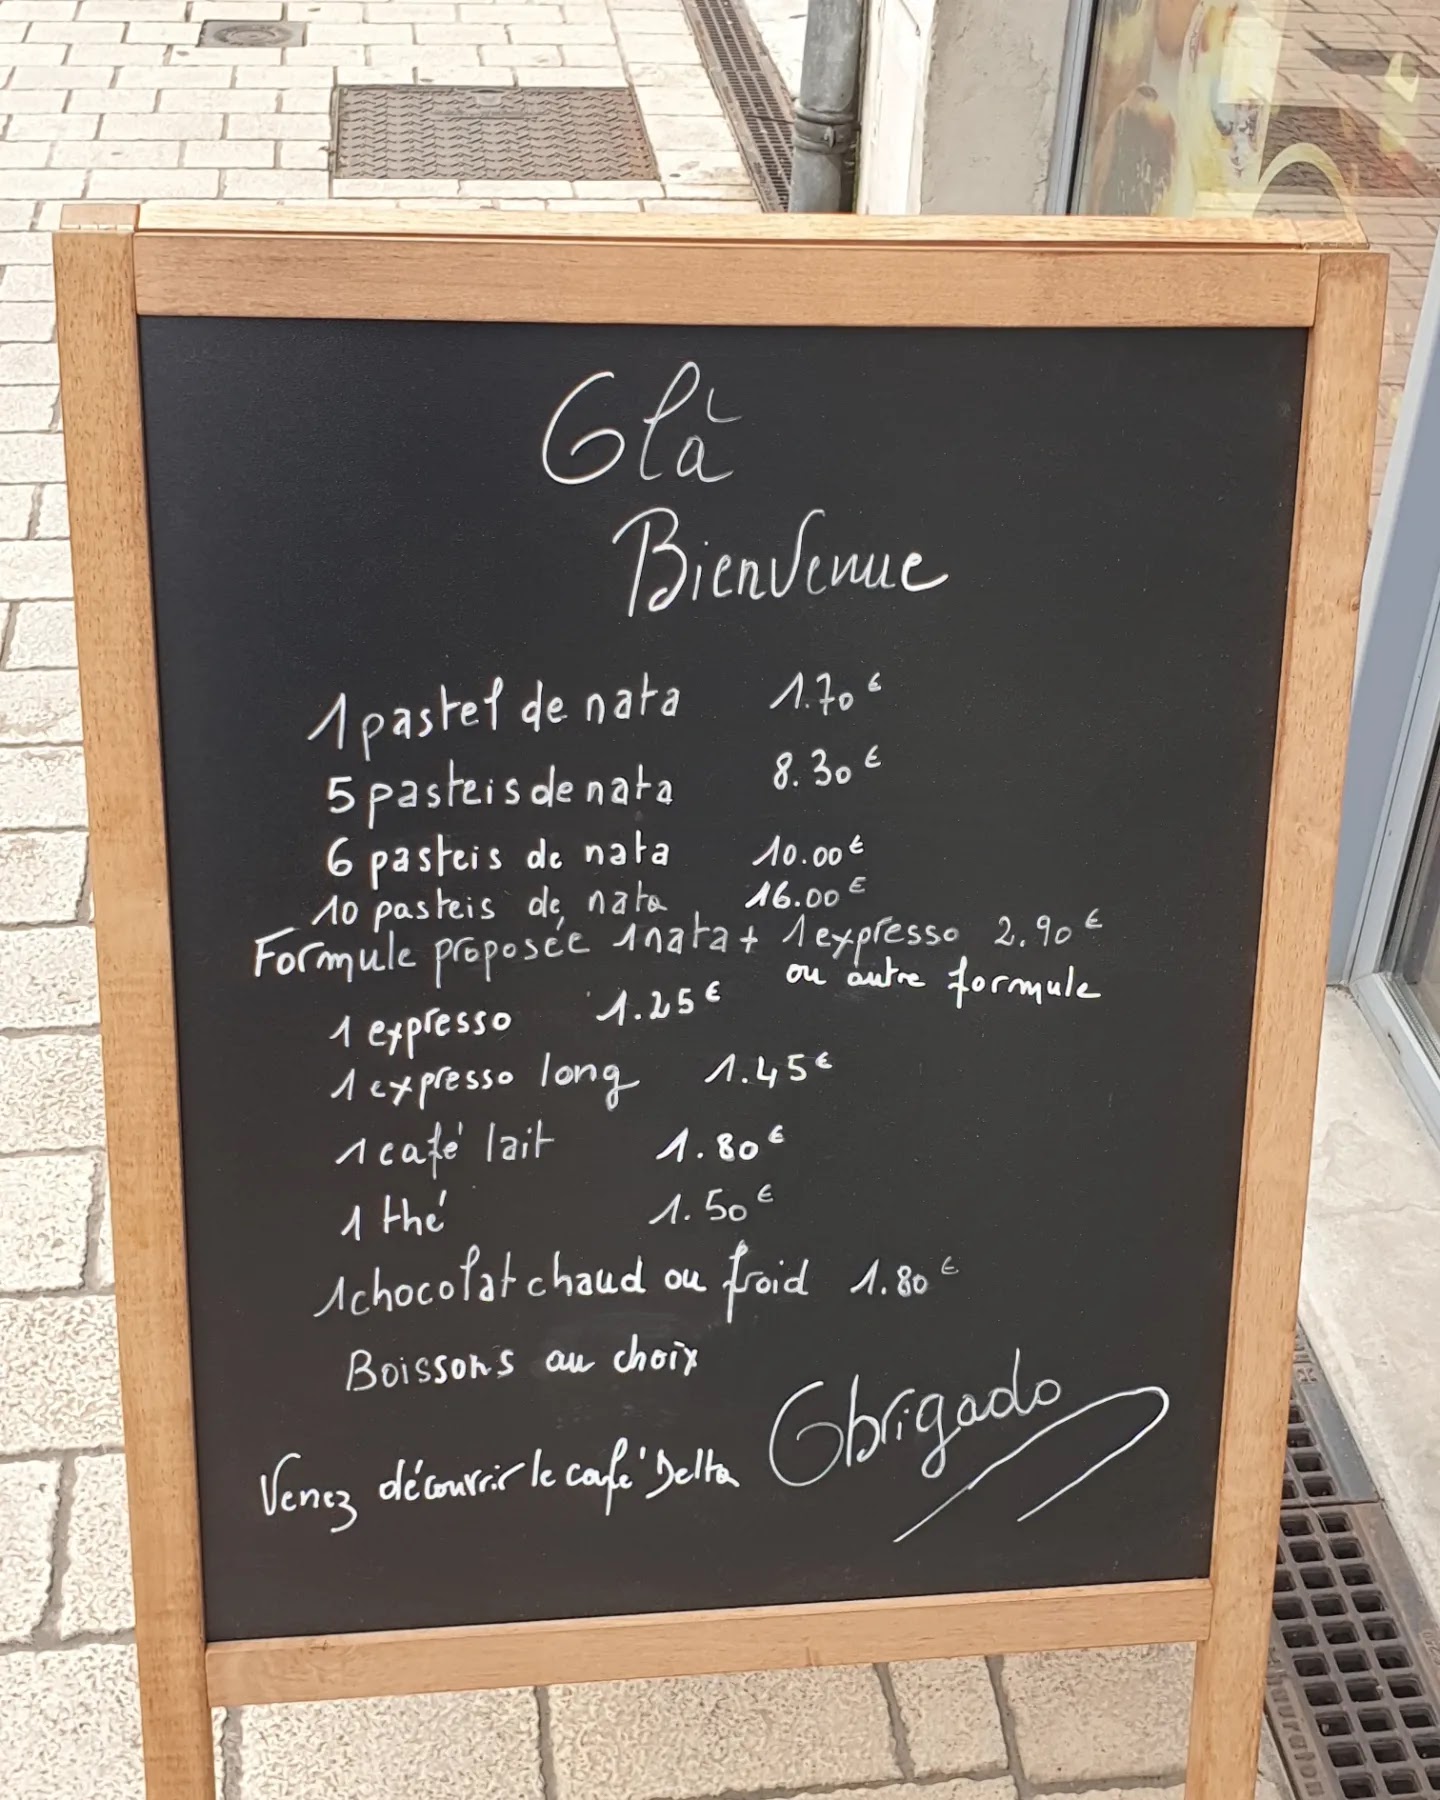 Olà
Bienvenue
1 pastel de nata 1.70€
5 pasteis de nata 8.30€
6 pasteis de nata 10.00€
10 pasteis de nata 16.00€
Formule proposée 1 nata + 1 expresso 2.90€
ou autre formule
1 expresso 1.25€
1 expresso long 1.45€
1 café lait 1.80€
1 thé 1.50€
1 chocolat chaud ou froid 1.80€
Boissons au choix
Venez découvrir le café Delta Obrigado